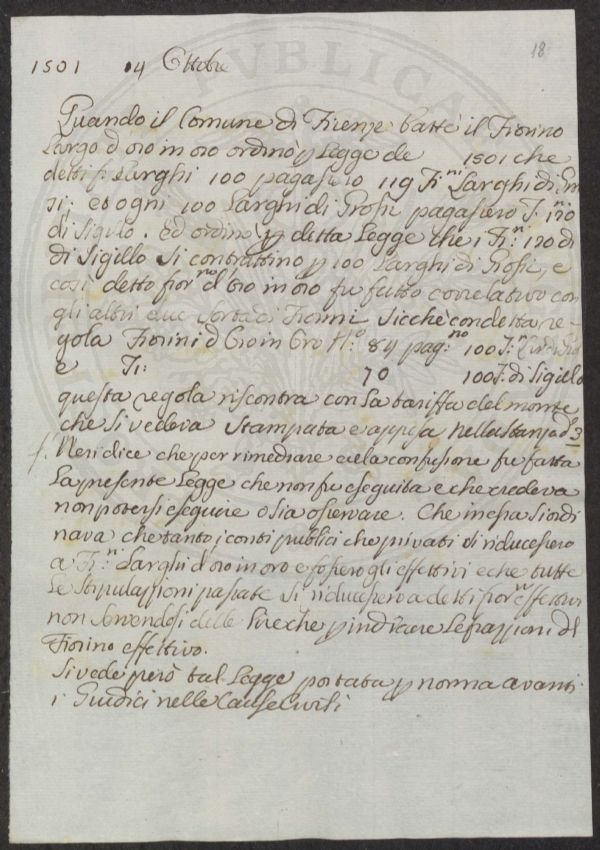 18
1501 04 Ottobre
Quando il Comune di Firenze battè il Fiorino
Largo d oro in oro ordinò p Legge de 1501 che
detti f: Larghi 100 pagassero 119 Fi:ni Larghi di Gros
si; ed ogni 100 Larghi di Grossi pagassero F:ni 120
di Sigillo. ed ordinò p detta Legge che i Fi:ni 120 di
di Sigillo si contrattino p 100 Larghi di Grossi, e
così detto fior:no d'oro in oro fu fatto correlativo con
gli altri due sorta di Fiorini Sicchè con detta re-
gola Fiorini d Oro in Oro N:o 84 pag:no 100 F:
e Fi: 70 100 F: di Sigillo
questa regola riscontra con la tariffa del monte
che si vedeva stampata e appesa nella stanza d 3
Neri dice che per rimediare a la confusione fu fatta
la presente Legge che non fu eseguita e che credeva
non potersi eseguire o sia osservare. Che in essa si ordi
nava che tanto i conti publici che privati si riducessero
a Fi:ni Larghi d'oro in oro e fossero gli effettivi e che tutte
le stipulazzioni passate si riducessero a detti fior:ni effettivi
non servendosi delle Lire che p indicare le frazzioni del
Fiorino effettivo.
Si vede però tal Legge portata p norma avanti
i Giudici nelle Cause Civili
PVBLICA